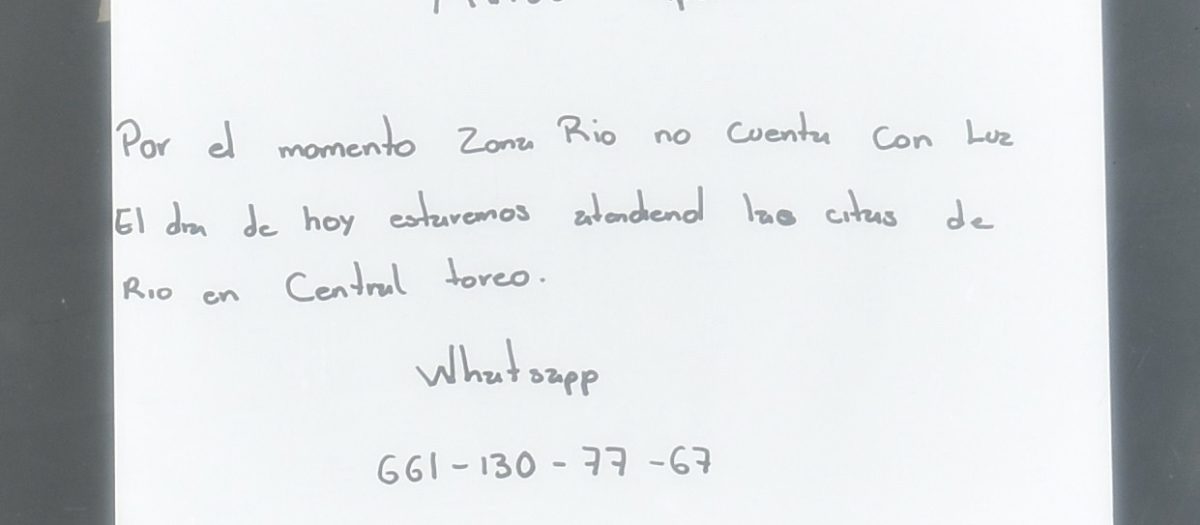 Por el momento Zona Rio no cuenta con Luz
El dia de hoy estaremos atendiend las citas de
Rio en Central toreo.
Whatsapp
661-130-77-67